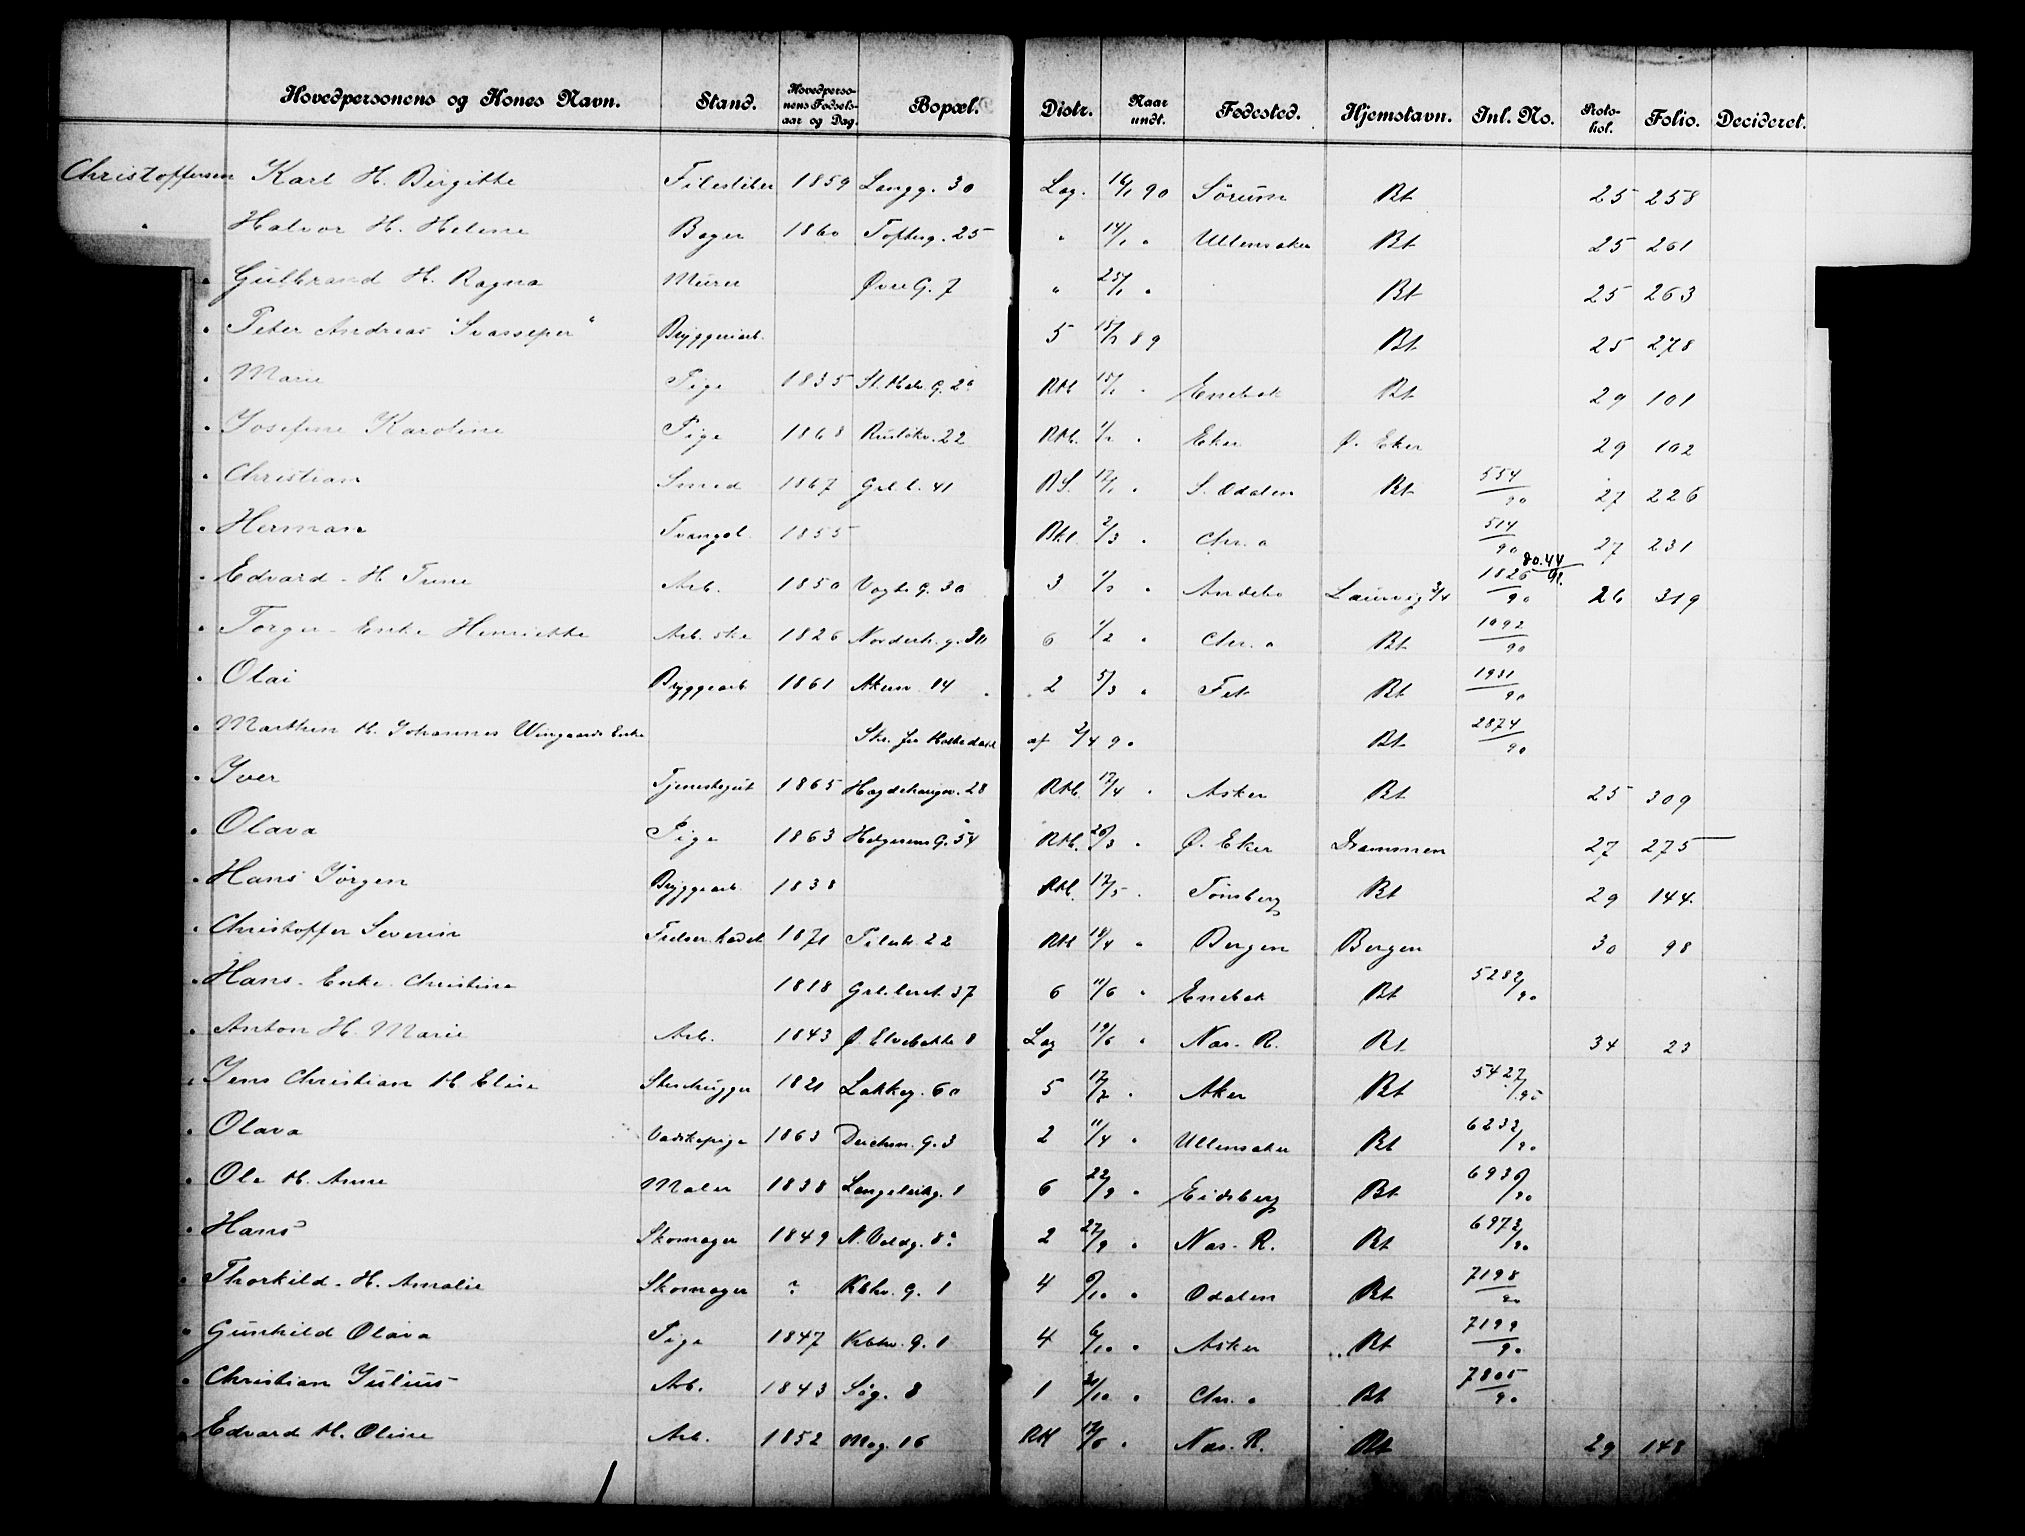 Hovedpersonens og Kones Navn. Stand. Hovedperso-nens Fødsels-aar og Dag. Bopæl. Distr. Naar undt. Fødested. Hjemstavn. Inl. No. Proto-kol. Folio. Decideret.
Christoffersen Karl H. Birgitte 1859 Langg. 30 Lag. 16/1 90 Sørum Bt 25 258
" Halvor H. Helene Bager 1860 Toftesg. 25 " 14/1 " Ullensaker Bt 25 261
" Gulbrand H. Ragna Murer Øvre G. 7 " 25/1 " Bt 25 263
" Peter Andreas "Svasseper" Bryggeriarb. 5 89 Bt 25 278
" Marie Pige 1835 RH 15/1 " Enebak Bt 29 101
" Josefine Karoline Pige 1868 Rusløkv. 22 RH. " Eker Ø. Eker 29 102
" Christian Smed 1867 Grl.l. 41 RS. 17/1 " S. Odalen Bt 554/90 27 226
" Herman Tvangsl. 1855 2/3 " Chr.a 514/90 27 231
" Edvard - H Trine Arb. 1850 Vogts g. 30 3 " Andebo Laurvig 3/4 1826/90 do. 44/91. 26 319
" Torger - Enke Henriette Arb. ske 1826 Norderh. g. 6 1/2 " Chr.a Bt 1092/90
" Olai Bryggearb 1861 Akersv. 14 2 5/3 " Fet Bt 1931/90
" Marthin H. Johannes Wingaards Enke Skr. fra af 2/4 90 Bt 2874/90
" Iver Tjenestegut 1865 Hegdehaugsv. 28 RH. 17/4 " Asker Bt 25 309
" Olava Pige 1863 Helgesens G. 54 RH. 26/3 " Ø. Eker Drammen 27 275
" Hans Jørgen Bryggearb. 1838 RH. 12/5 " Tønsberg Bt 29 144.
" Christoffer Severin 1871 Pilest. 22 RH 18/4 " Bergen Bergen 30 98
" Hans - Enke Christine 1818 Grl.leret. 37 6 11/6 " Enebak Bt 5282/90
" Anton H. Marie Arb. 1843 Ø. Elvebakke 8 Lag 19/6 " Nas. R. Bt 34 23
" Jens Christian H Elise Stenhugger 1821 Lakkeg. 60 5 17/7 " Aker Bt 5427/90
" Olava Vadskepige 1863 Deichm. G. 3 2 11/4 " Ullensaker Bt 6232/90
" Ole H. Anne Maler 1838 Langeleikg. 1 6 22/9 " Eidsberg Bt 6936/90
" Hans Skomager 1849 N. Voldg. 8 2 27/9 " Nas. R. Bt 6973/90
" Thorkild - H. Amalie Skomager ? Kbhv. G. 1 4 6/10 " Odalen Bt 7198/90
" Gunhild Olava Pige 1847 Kbhv. G. 1 4 6/10 " Asker Bt 7199/90
" Christian Julius Arb. 1843 Søg. 8 1 /10 " Chr.a Bt 7805/90
" Edvard H. Oline Arb. 1852 Møg. 16 RH 12/6 " Nas. R. Bt 29 148